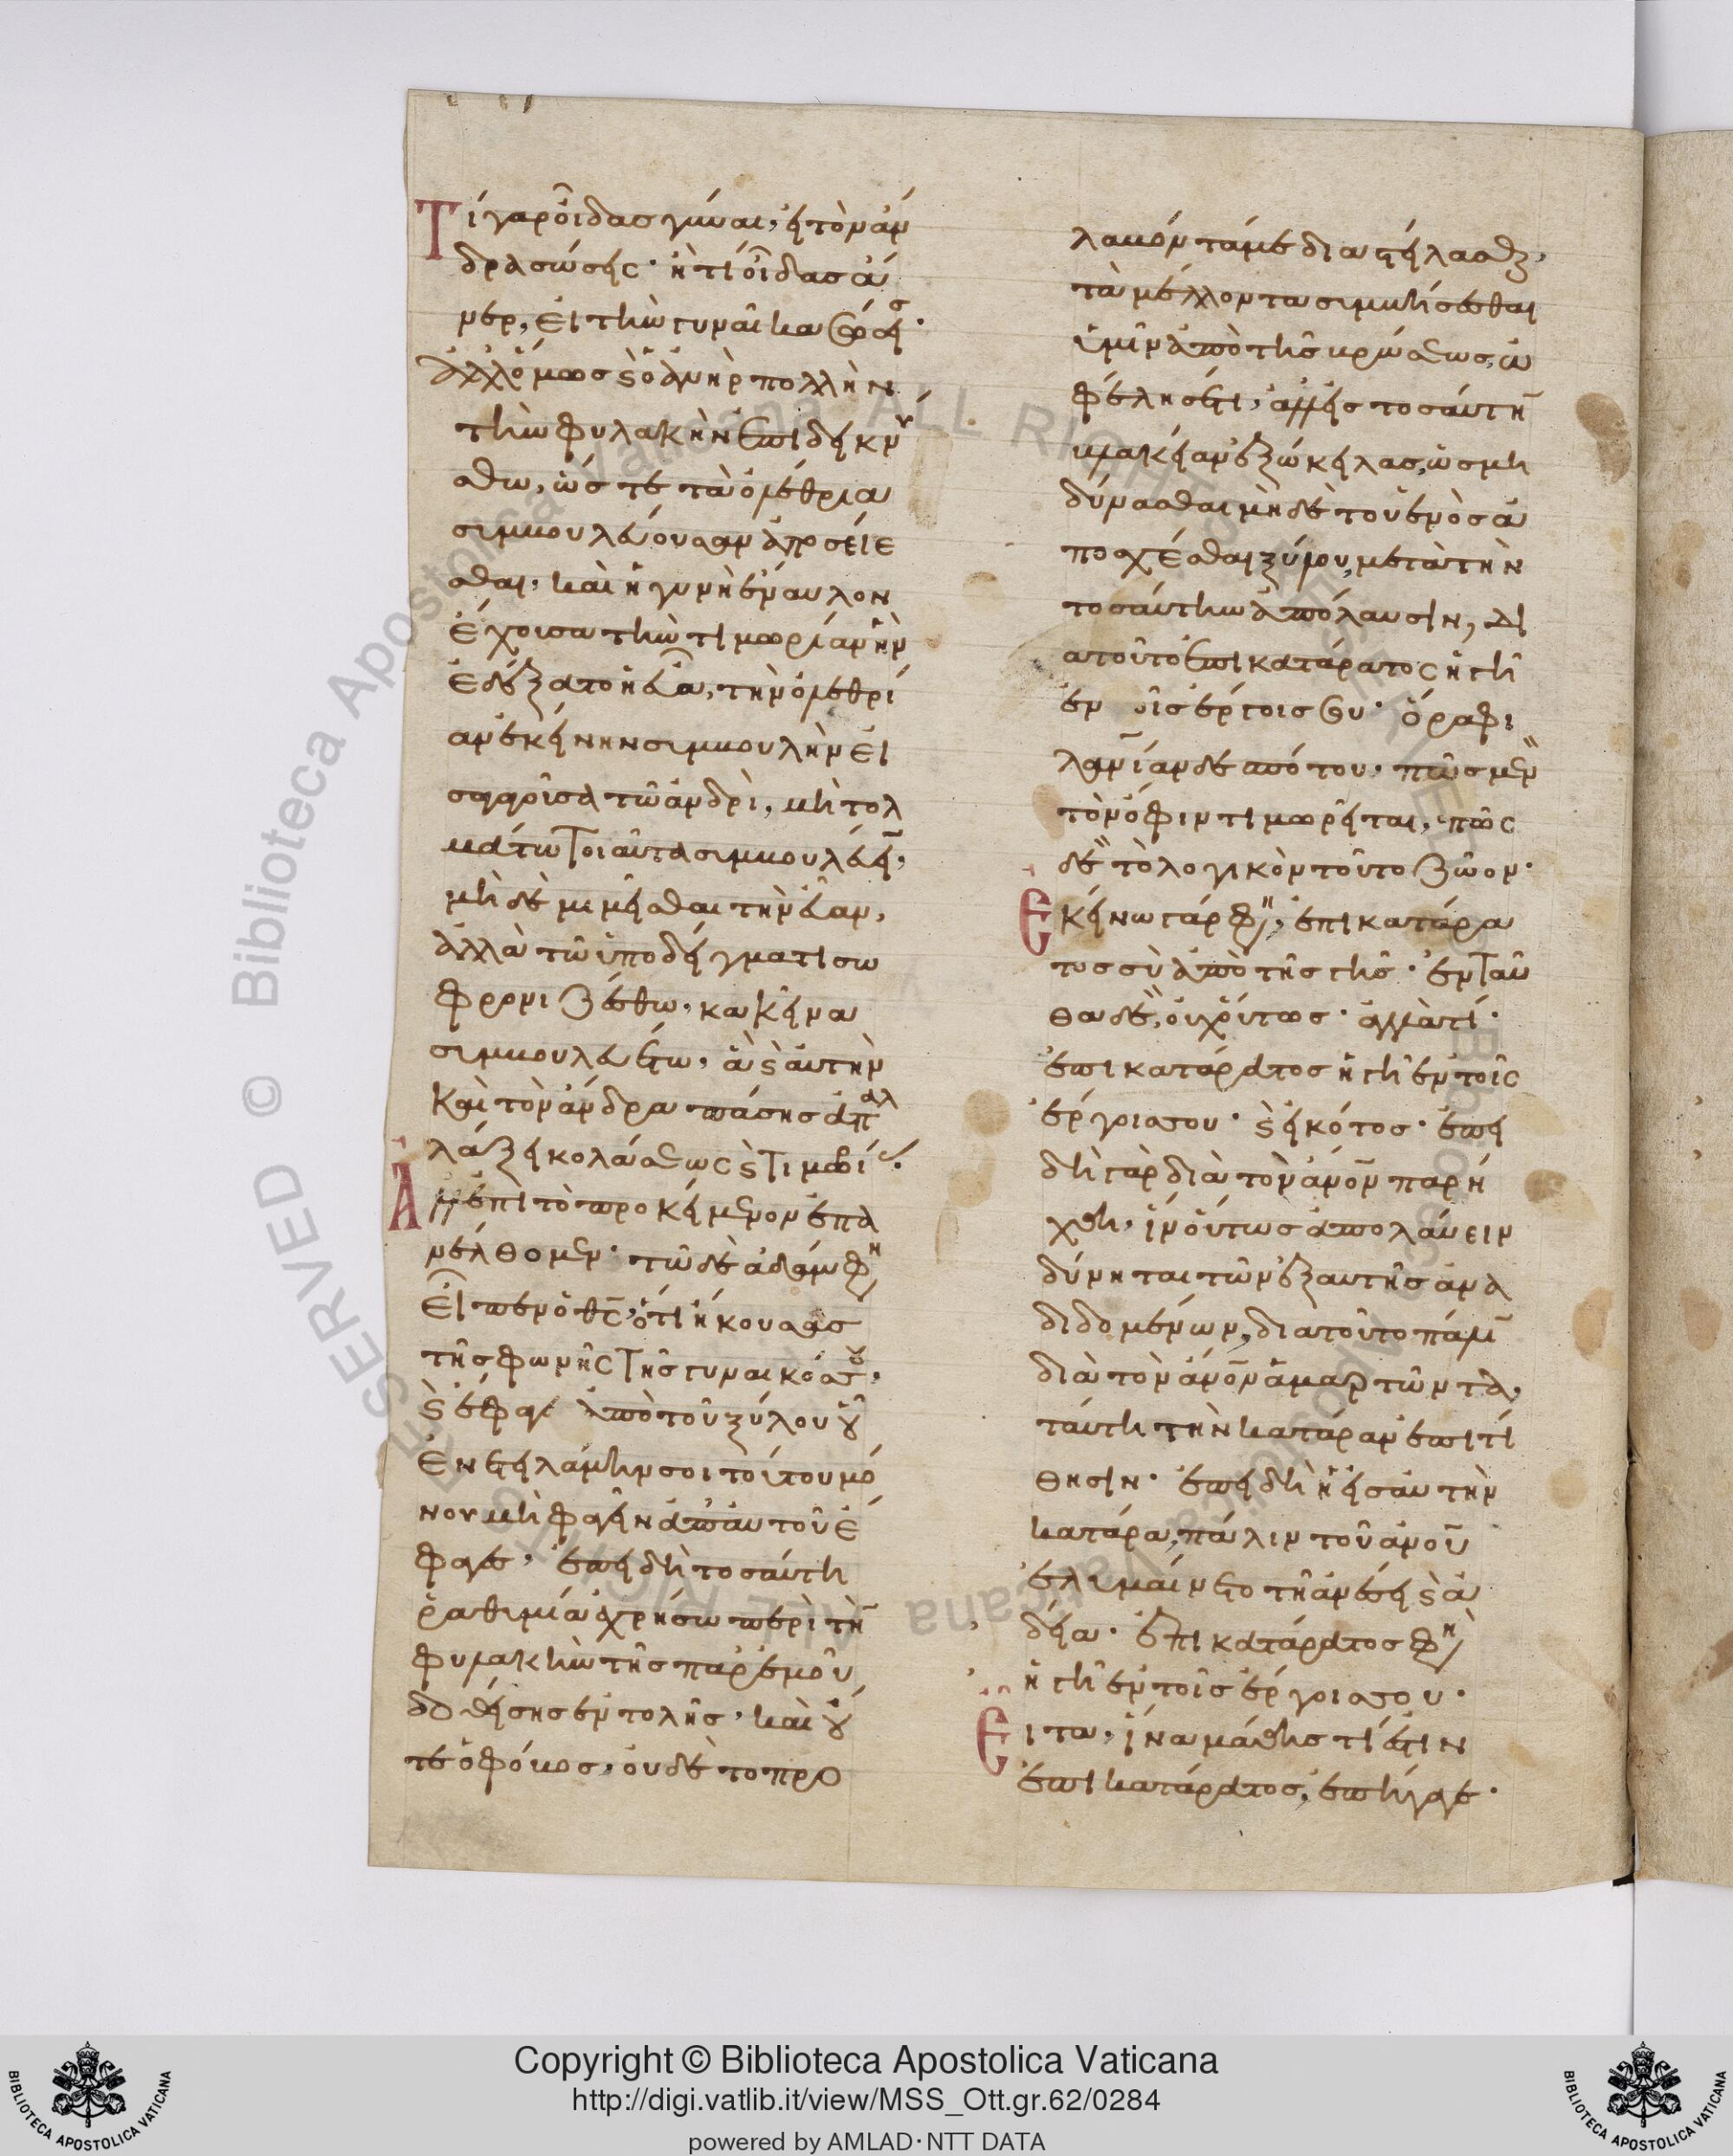 Τί γαρ οἶδας γύναι, εἰ τὸν ἄν
δρα σώσεις· ἢ τί οἶδας ἄ
νερ, εἰ τὴν γυναῖκα σώσεις·
Ἀλλ' ὅμως καὶ ὁ ἀνὴρ πολλὴν
τὴν φυλακὴν ἐπιδεικνύ
σθω, ὥστε τὰ ὀλέθρια
συμβουλεύουσαν ἀποσείε
σθαι· καὶ ἡ γυνὴ ἔναυλον
ἔχουσα τὴν τιμωρίαν ἣν
ἐδέξατο ἡ εὖα, τὴν ὀλεθρί
αν ἐκείνην συμβουλὴν εἰ
σαγαγοῦσα τῶ ἀνδρὶ, μὴ τολ
μάτω τοιαῦτα συμβουλεύειν,
μὴ δὲ μιμεῖσθαι τὴν εὔαν,
ἀλλὰ τῶ ὑποδείγματι σω
φρονιζέσθω, κακεῖνα
συμβουλευέτω, ἃ καὶ αὐτὴν
καὶ τὸν ἄνδρα πάσης ἀπαλ
λάξει κολάσεως καὶ τιμωρίας.
Ἀλλ' ἐπὶ τὸ προκείμενον ἐπα
νέλθομεν· τῶ δὲ ἀδάμ φη
εἶπεν ὁ θς, ὅτι ἤκουσας
τῆς φωνῆς τῆς γυναικός σου,
καὶ ἔφαγες ἀπὸ τοῦ ξύλου οὗ
ἐνετειλάμην σοι τούτου μό
νου μὴ φαγεῖν ἀπ' αὐτοῦ ἔ
φαγες, ἐπειδὴ τοσαύτη
ῥαθυμία ἐχρήσω περὶ τὴν
φυλακὴν τῆς παρ' ἐμοῦ
δοθείσης ἐντολῆς, καὶ οὔ
τε ὁ φόβος, οὐδὲ τὸ προ
λαβόντά με διαστείλασθαι,
τὰ μέλλοντα συμβήσεσθαι
ὑμῖν ἀπὸ τῆς βρώσεως, ὠ
φέλησέ τι, ἀλλ' εἰς τοσαύτην
κακεῖαν ἐξώκειλας, ὡς μὴ
δύνασθαι μὴ δὲ τοῦ ἑνὸς ἀ
ποσχέσθαι ξύλου, μετὰ τὴν
τοσαύτην ἀπόλαυσιν, δι
ατοῦτο ἐπικατάρατος ἡ γῆ
ἐν τοῖς ἔργοις σου· ὅρα φι
λανίαν δεσπότου, πῶς μεν
τὸν ὄφιν τιμωρεῖται, πῶς
δὲ τὸ λογικὸν τοῦτο ζῶον·
Ἐκείνω γάρ φη, ἐπικατάρα
τος σὺ ἀπὸ τῆς γῆς· ἐνταῦ
θα δὲ, οὐχ οὕτως· ἀλλὰ τί·
ἐπικατάρατος ἡ γῆ ἐν τοῖς
ἔργοις σου· καὶ εἰκότος· ἐπει
δὴ γὰρ διὰ τὸν ἄνον παρή
χθη, ἵν' οὕτως ἀπολαύειν
δύνηται τῶν ἐξ αυτῆς ἀνα
διδομένων, διατοῦτο πάλιν
διὰ τὸν ἄνον ἁμαρτῶντα,
ταύτη τὴν κατάραν ἐπιτί
θησιν· ἐπειδὴ ἡ εἰς αὐτὴν
κατάρα, πάλιν τοῦ ἀνου
ἐλυμαίνετο τῆ ἀνέσει καὶ ἀ
δεία· ἐπικατάρατος φη
ἡ γῆ ἐν τοῖς ἔργοις σου·
Εἶτα, ἵνα μάθης τί ἐστιν
ἐπικατάρατος, ἐπήγαγε·
Copyright © Biblioteca Apostolica Vaticana
http://digi.vatlib.it/view/MSS_Ott.gr.62/0284
powered by AMLAD·NTT DATA